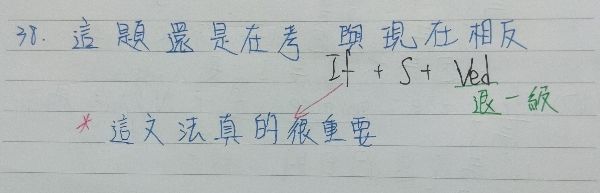 38. 這題還是在考 與現在相反
If + S + Ved
退一級
* 這文法真的很重要